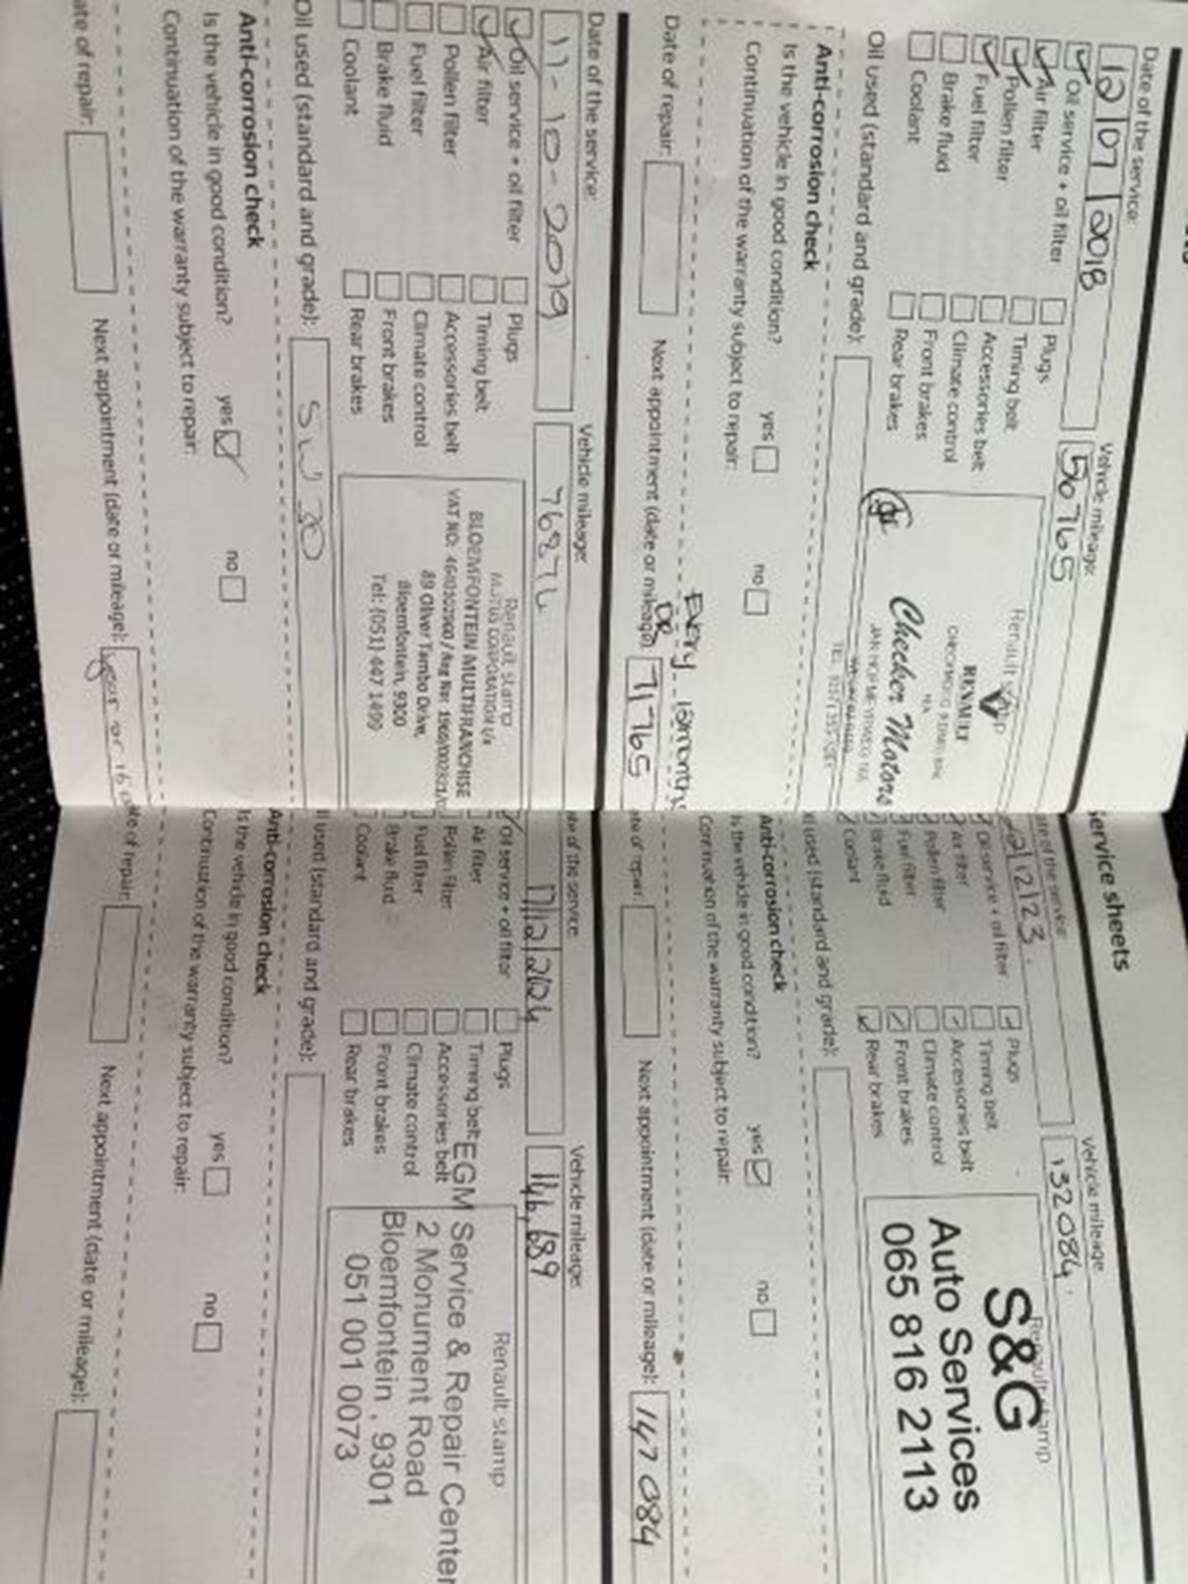 Date of the service:
Vehicle mileage:
12/07/2018
50765
Oil service + oil filter
Plugs
Air filter
Timing belt
Pollen filter
Accessories belt
Fuel filter
Climate control
Brake fluid
Front brakes
Coolant
Rear brakes
Renault
RENAULT
Checker Motors
Oil used (standard and grade):
Anti-corrosion check
Is the vehicle in good condition?
yes
no
Continuation of the warranty subject to repair:
EVERY 12months
OR
Date of repair:
Next appointment (date or mileage):
71765
Date of the service:
Vehicle mileage:
11-10-2019
Oil service + oil filter
Plugs
Air filter
Timing belt
Pollen filter
Accessories belt
Fuel filter
Climate control
Brake fluid
Front brakes
Coolant
Rear brakes
Renault stamp
MOTUS CORPORATION t/a
BLOEMFONTEIN MULTIFRANCHISE
VAT NO:
89 Oliver Tambo Drive,
Bloemfontein, 9300
Tel: (051) 447 1499
Oil used (standard and grade):
Anti-corrosion check
Is the vehicle in good condition?
yes
no
Continuation of the warranty subject to repair:
ate of repair:
Next appointment (date or mileage):
year or
ervice sheets
ate of the service:
Vehicle mileage:
12/12/23.
132084.
Oil service + oil filter
Plugs
Air filter
Timing belt
Pollen filter
Accessories belt
Fuel filter
Climate control
Brake fluid
Front brakes
Coolant
Rear brakes
Renault stamp
S&G
Auto Services
065 816 2113
il used (standard and grade):
Anti-corrosion check
Is the vehicle in good condition?
yes
no
Continuation of the warranty subject to repair:
ate of repair:
Next appointment (date or mileage):
147 084
ate of the service:
Vehicle mileage:
146,689
Oil service + oil filter
Plugs
Air filter
Timing belt
Pollen filter
Accessories belt
Fuel filter
Climate control
Brake fluid
Front brakes
Coolant
Rear brakes
Renault stamp
EGM Service & Repair Center
2 Monument Road
Bloemfontein, 9301
051 001 0073
il used (standard and grade):
Anti-corrosion check
Is the vehicle in good condition?
yes
no
Continuation of the warranty subject to repair:
ate of repair:
Next appointment (date or mileage):